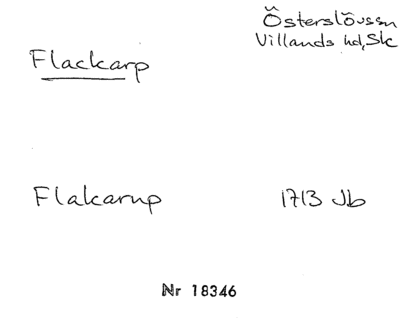 Österslövssn
Villands hd, Sk
Flackarp
Flakarup 1713 Jb
Nr 18346